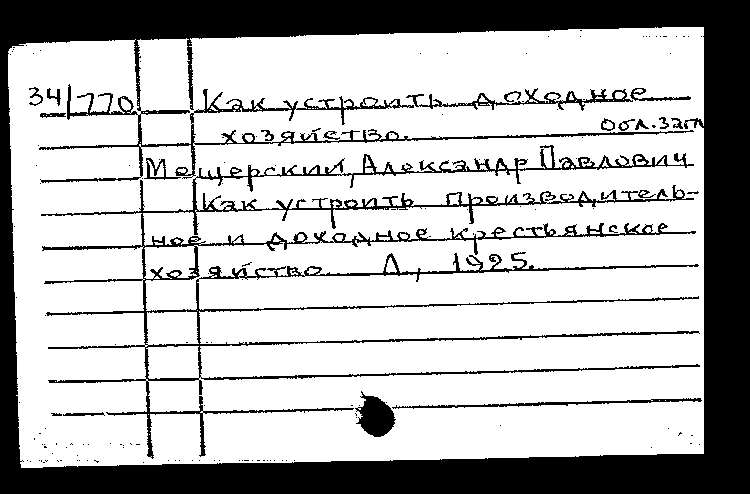 34/770 Как устроить доходное
хозяйство. Обл. загл
Мещерский, Александр Павлович
Как устроить производитель-
ное и доходное крестьянское
хозяйство. Л, 1925.